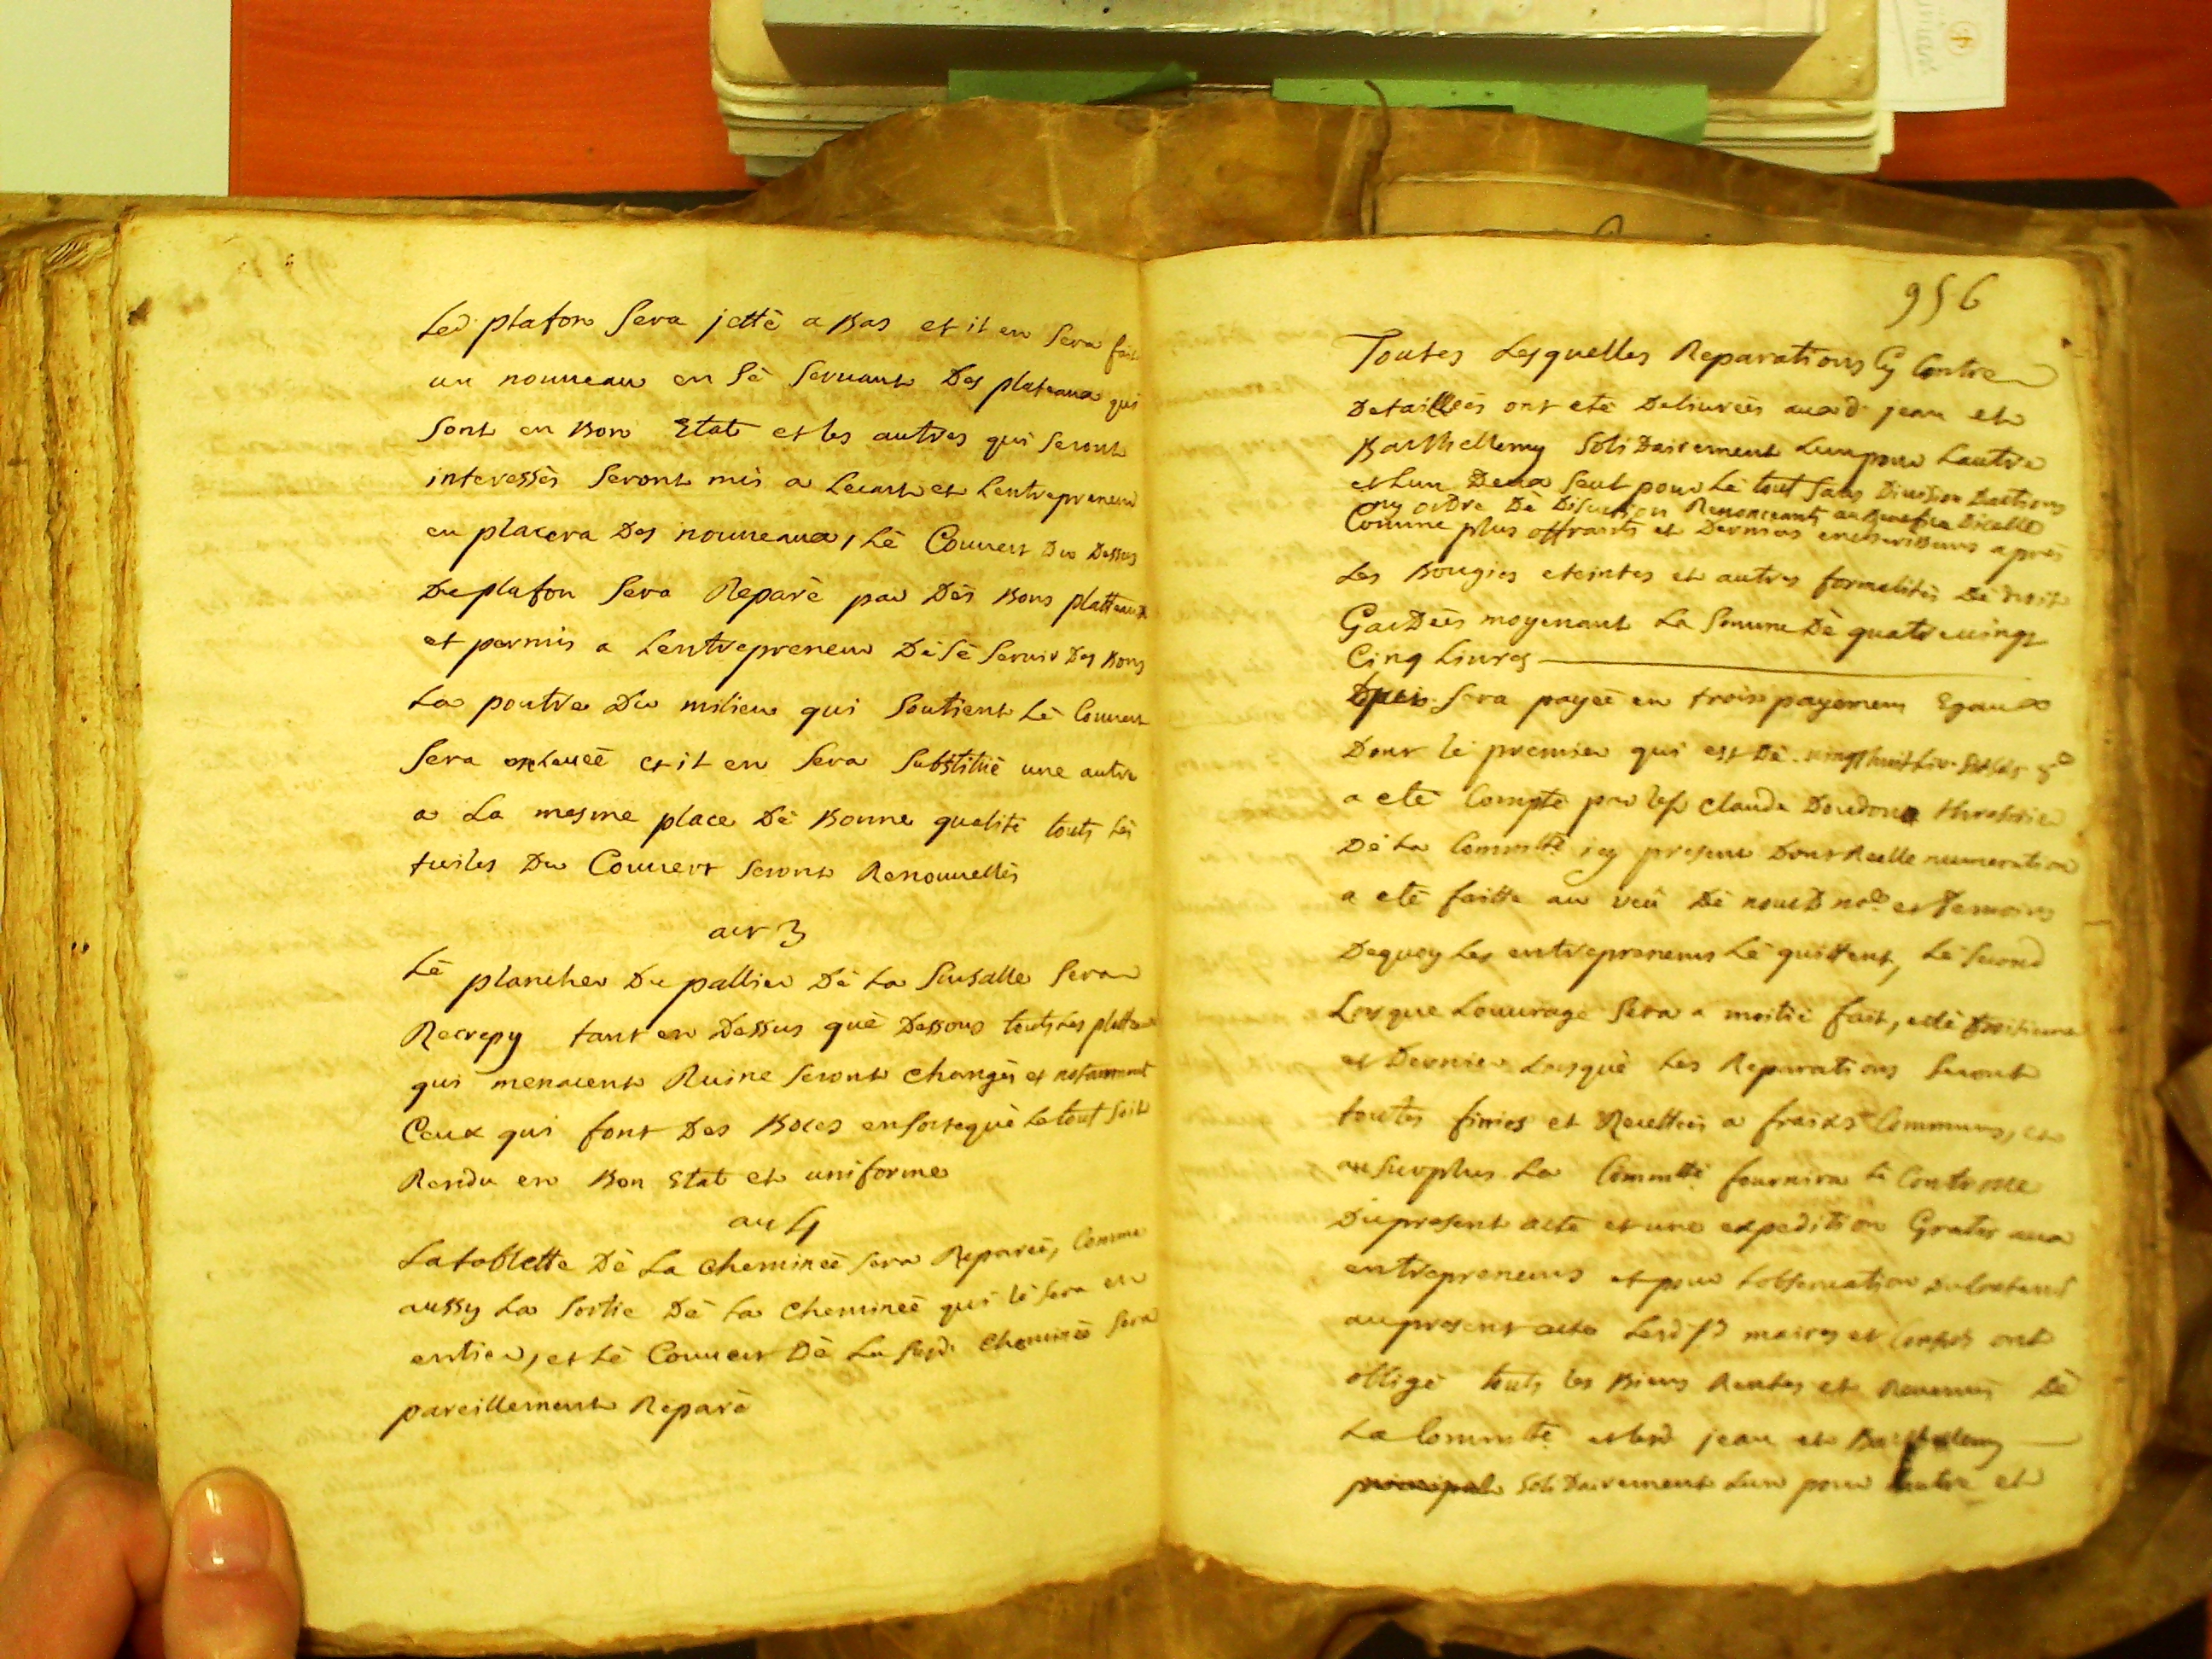 Led. plafon Sera jetté a Bas et il en Sera fait
un nouveau en Sè Servant Des plateaux qui
Sont en Bon Etat et les autres qui Seront
interessès Seront mis a Lecart et Lentrepreneur
en placera Des nouveaux, Lè Couvert Du Dessus
Du plafon Sera Reparè par Dès Bons platteaux
et permis a Lentrepreneur Dè Sè Servir Des Bons
La poutre Du milieu qui Soutient Lè Couvert
Sera enlevèè et il en Sera Substituè une autre
a La mesme place Dè Bonne qualité touts Lès
tuiles Du Couvert Seront Renouvellès
art 3
Lè plancher Du pallier Dè La Susalle Sera
Recrepy tant en Dessus què Dessous touts Les platteaux
qui menacent Ruine Seront changès et notamment
Ceux qui font Des Boces en Sorte què Le tout Soit
Rendu en Bon Etat et uniforme
art 4
La tablette Dè La cheminéè Sera Reparéè, Comme
aussy La Sortie Dè La cheminéè qui lè Sera en
entier, et Lè Couvert Dè La Susd. cheminéè Sera
pareillement Reparè
956
Toutes Lesquelles Reparations Cy Contre
Detailléès ont etè Delivréès auxd. jean et
Barthellemy Solidairement Lun pour Lautre
et Lun Deux Seul pour Lè tout Sans Division Dactions
ny ordre Dè Discution Renonceants au Benefice Dicelle
Comme plus offrants et Derniers encherisseurs après
Les Bougies eteintes et autres formalitès Dè Droit
Gardéès moyenant La Somme Dè quatre vingt
Cinq Livres
Sera payéè en trois payemens Egaux
Dont lè premier qui est Dè vingt huit Liv.
a etè Compté par Claude Doudon
Dè La Commtè icy present Dont Reelle numeration
a etè faitte au veû Dè nousd. nore et temoins
Dequoy Les entrepreneurs Lè quittent, Lè Second
Lorsque Louvrage Sera a moitiè fait, et lè troisieme
et Dernier Lorsquè Les Reparations Seront
toutes finies et Recettéès a fraixs Communs, et
au Surplus La Commtè fournira lè Controlle
Du present acte et une expedition Gratis aux
entrepreneurs et pour Lobservation Du Contenu
au present acte Lesd. Srs maires et Consuls ont
obligè touts les Biens Rentes et Revenus Dè
La Commtè et lesd. jean et Barthelemy
Solidairement Lun pour Lautre et